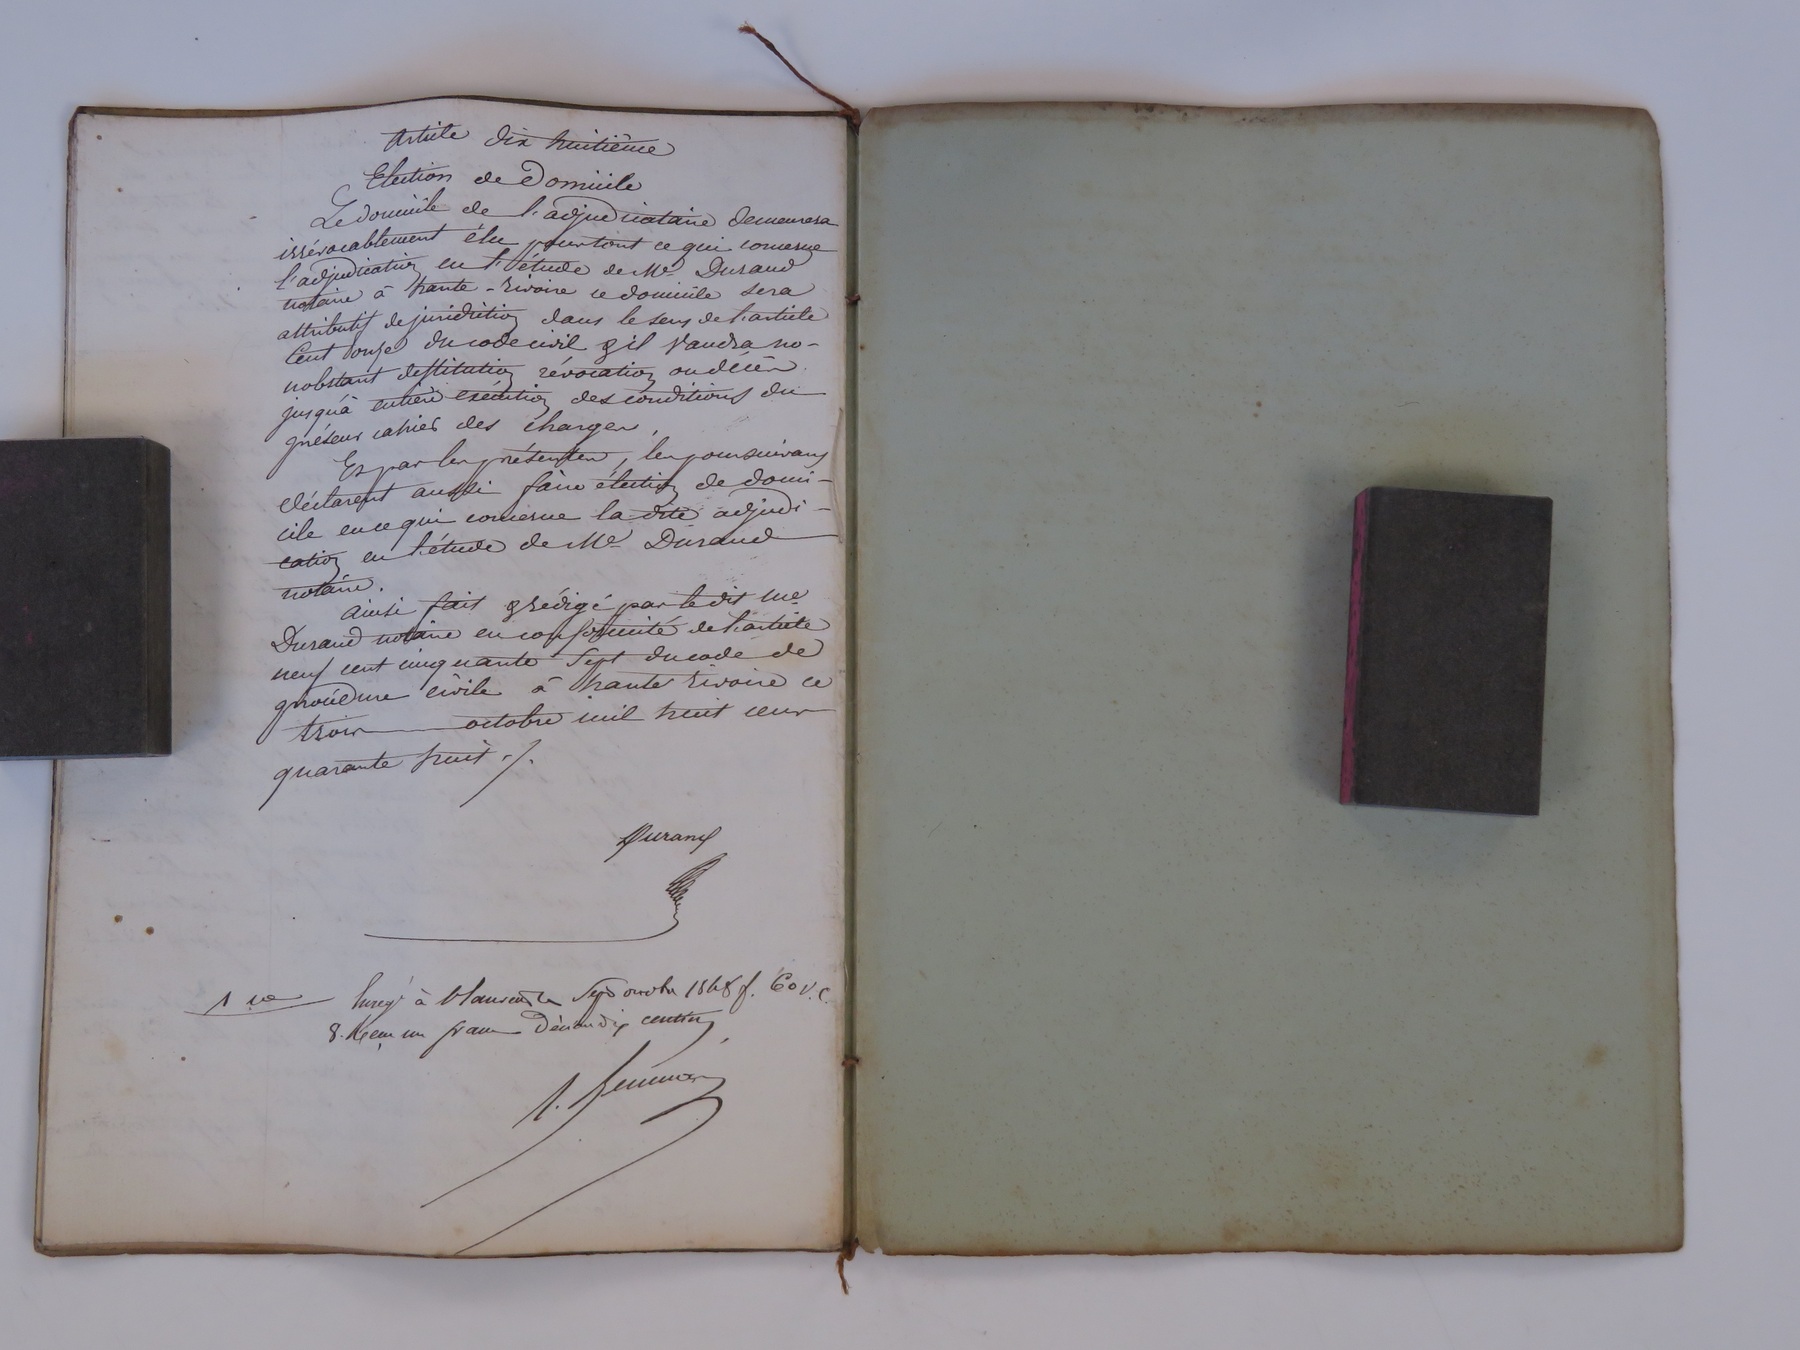 Article dix huitième
Election de Domicile
Le domicile de l'adjudicataire demeurera
irrévocablement élu pour tout ce qui concerne
l'adjudication en l'étude de Me Durand
notaire à haute-rivoire ce domicile sera
attributif de juridiction dans le sens de l'article
Cent onze du code civil & il vaudra no-
nobstant destitution révocation ou décès
jusqu'à entière exécution des conditions du
présent cahier des charges.
Et par les présentes, les poursuivans
déclarent aussi faire élection de domi-
cile en ce qui concerne la dite adjudi-
cation en l'étude de Me Durand
notaire.
Ainsi fait & rédigé par le dit Me
Durand notaire en conformité de l'article
neuf cent cinquante sept du code de
procédure civile à haute rivoire ce
trois octobre mil huit cent
quarante huit ./.
Durand
1 10 Enregé à St Laurent le Sept octobre 1848 f. 60 v. c.
8. Reçu un franc Décime dix centimes